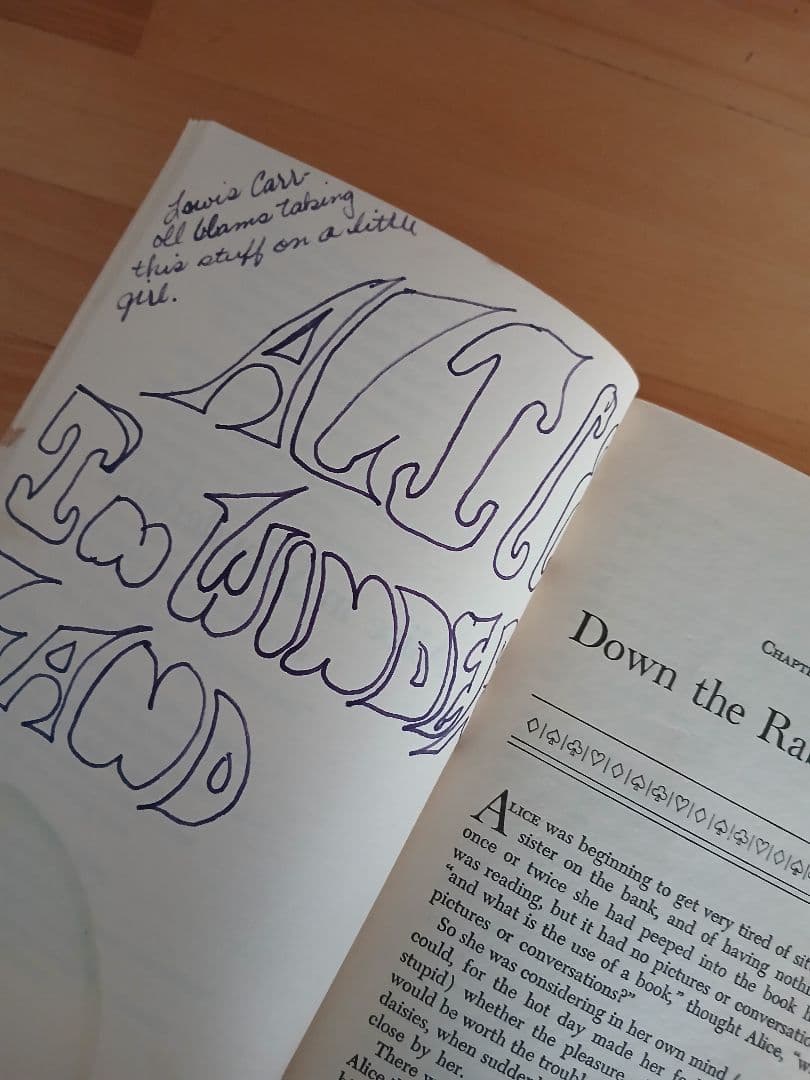 Lewis Carr-
oll blams taking
this stuff on a little
girl.
ALI
IN WONDE
LAND
Down the
ALICE was beginning to get very tired of
sister on the bank, and of having
once or twice she had peeped into the book
was reading, but it had no pictures or
“and what is the use of a book,” thought Alice,
pictures or conversations?”
So she was considering in her own mind
could, for the hot day made her
stupid) whether the pleasure
would be worth the
daisies, when
close by her.
There
Alice